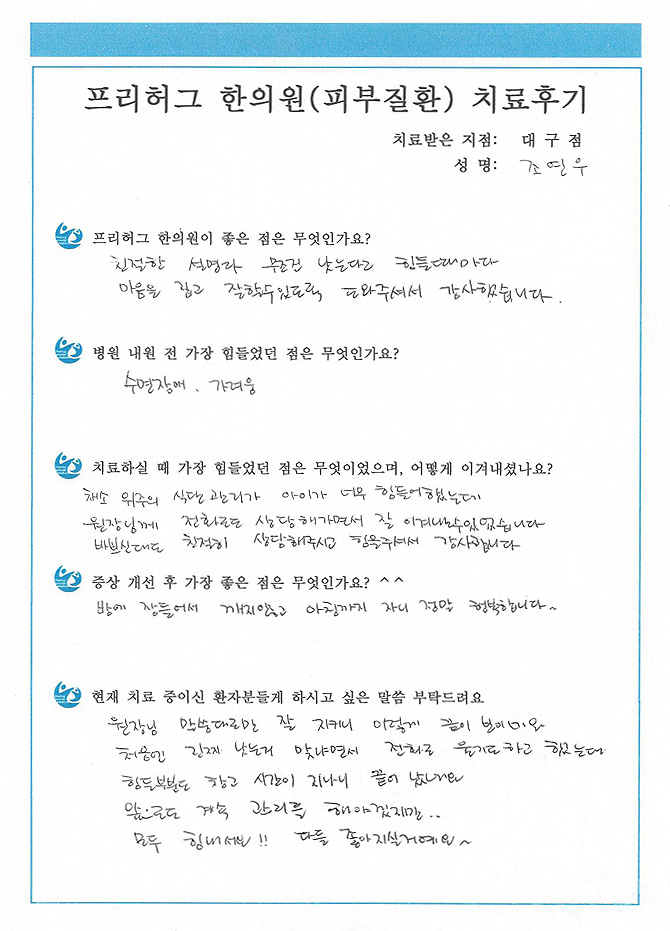 프리허그 한의원(피부질환) 치료후기
치료받은 지점: 대 구 점
성 명: 조 연 우
프리허그 한의원이 좋은 점은 무엇인가요?
친절한 설명과 무조건 낫는다고 힘들때마다
마음을 잡고 잘할수있도록 도와주셔서 감사했습니다.
병원 내원 전 가장 힘들었던 점은 무엇인가요?
수면장애. 가려움
치료하실 때 가장 힘들었던 점은 무엇이었으며, 어떻게 이겨내셨나요?
채소 위주의 식단 관리가 아이가 너무 힘들어했는데
원장님께 전화로도 상담해가면서 잘 이겨나갈수있었습니다
바쁘신대도 친절히 상담해주시고 힘을주셔서 감사합니다
증상 개선 후 가장 좋은 점은 무엇인가요? ^^
밤에 잠들어서 깨지않고 아침까지 자니 정말 행복합니다~
현재 치료 중이신 환자분들게 하시고 싶은 말씀 부탁드려요
원장님 말씀대로만 잘 지키니 이렇게 끝이 보이네요
처음엔 진짜 낫는거 맞냐면서 전화로 울기도하고 했는데
힘든부분도 참고 시간이 지나니 끝이 났네요
앞으로도 계속 관리를 해야겠지만..
모두 힘내세요!! 다들 좋아지실거예요~